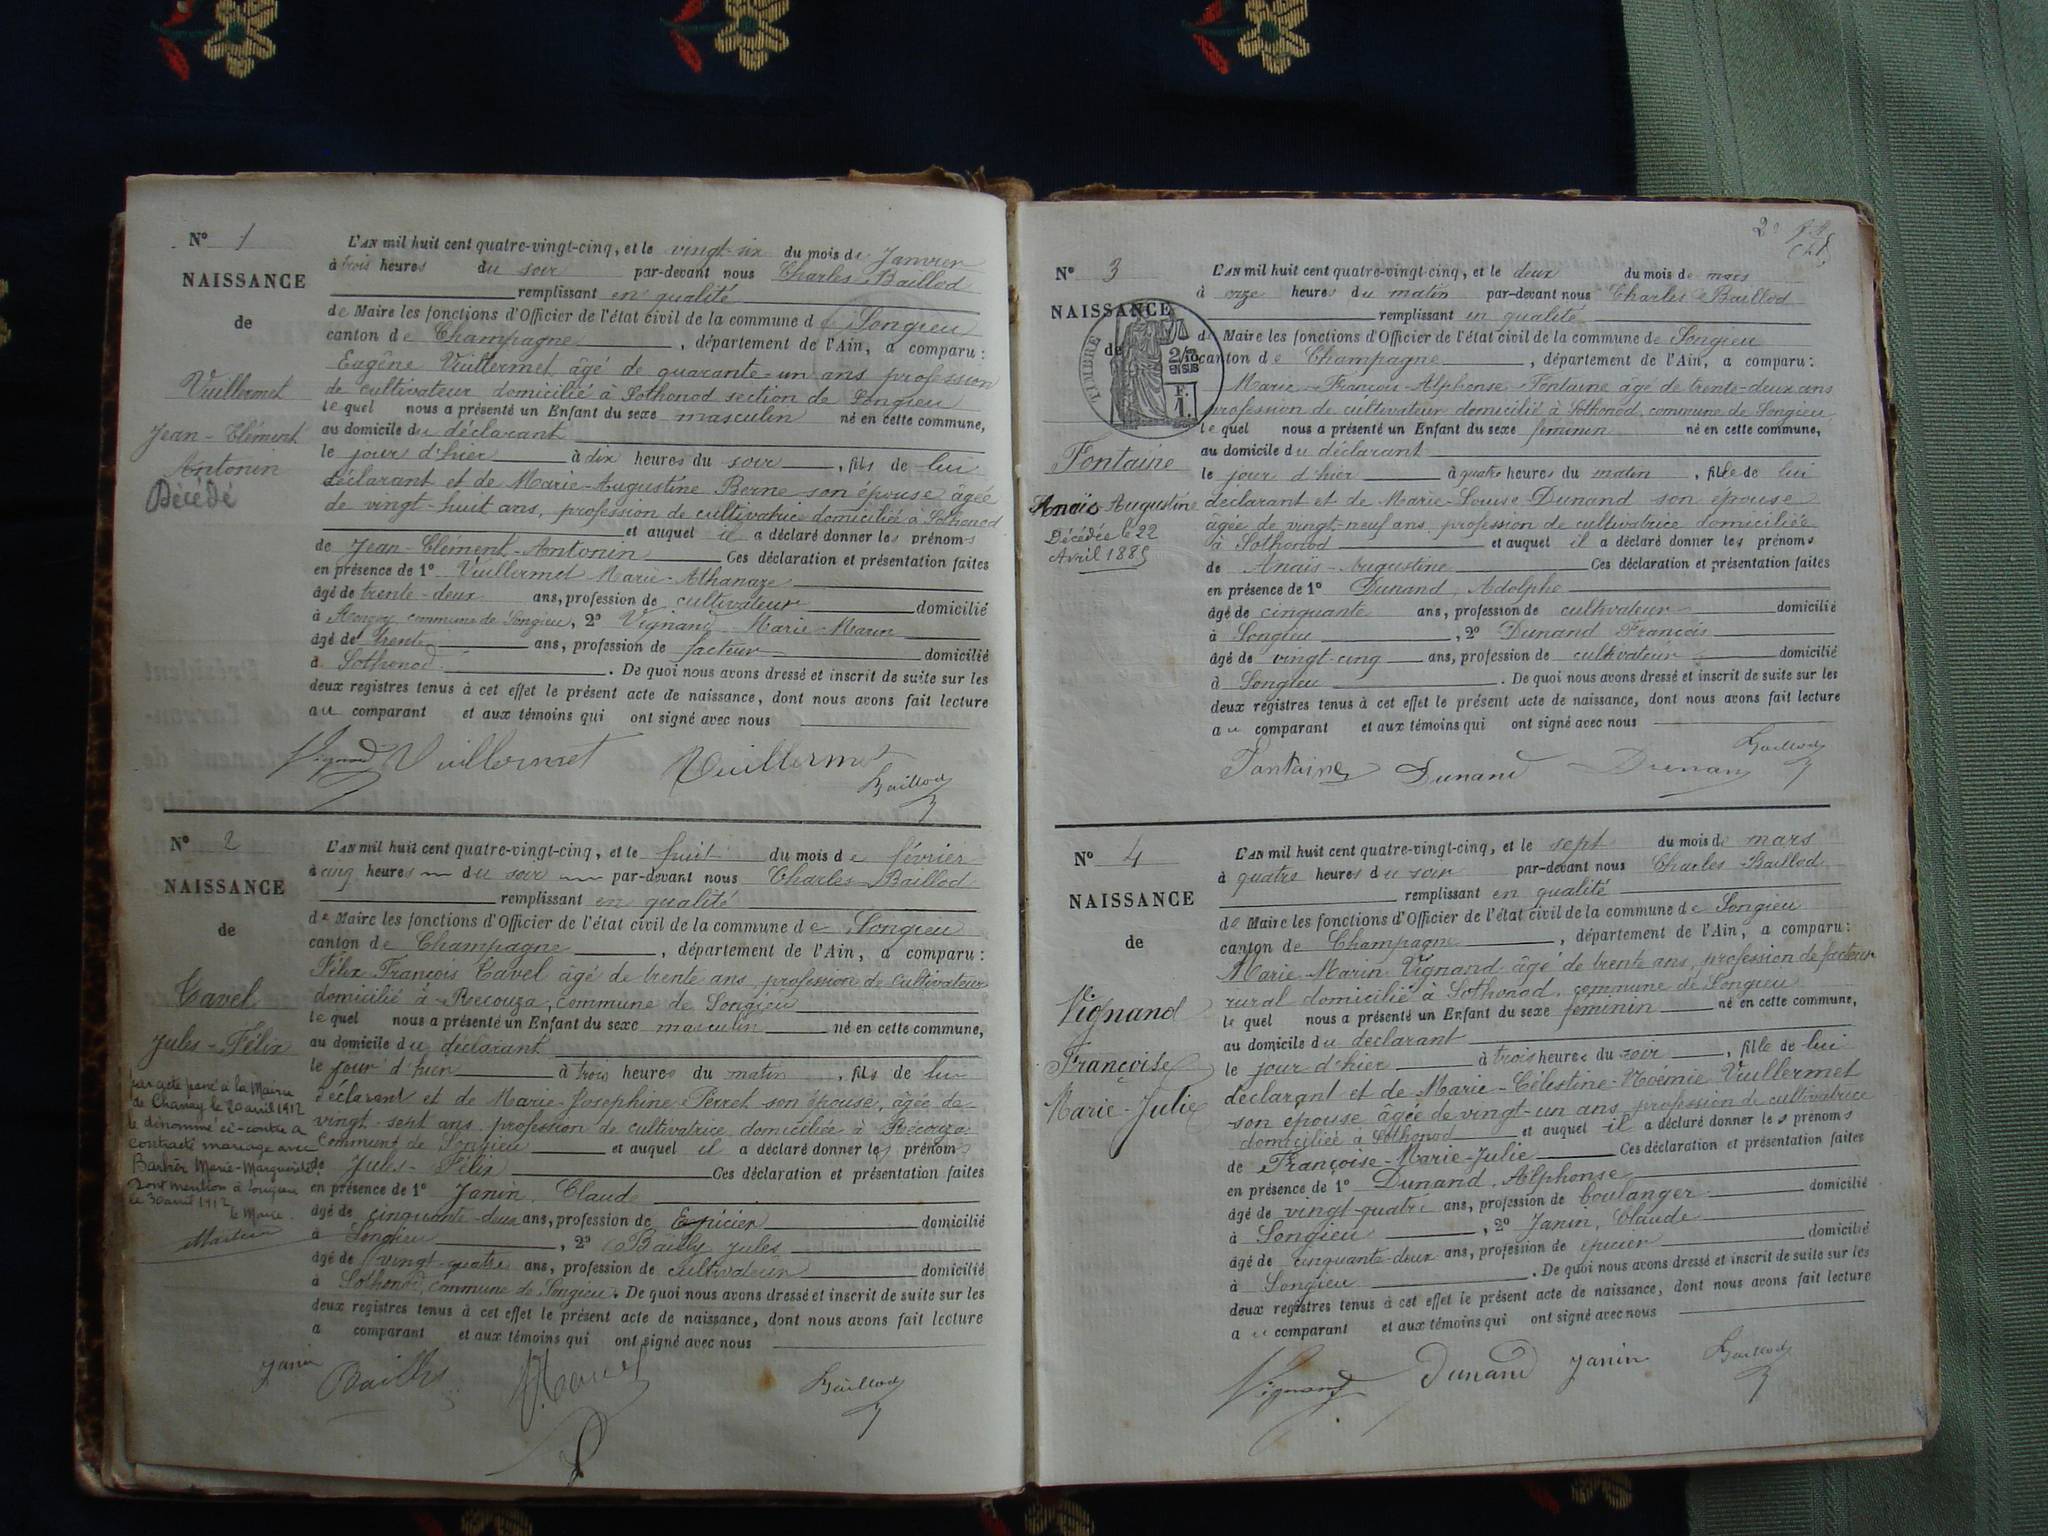 N° 1
NAISSANCE
de
Vuillermet
Jean-Clément
Antonin
Décédé
L'AN mil huit cent quatre-vingt-cinq, et le vingt-six du mois de Janvier
à trois heures du soir par-devant nous Charles Baillod
remplissant en qualité
de Maire les fonctions d'Officier de l'état civil de la commune de Songieu
canton de Champagne, département de l'Ain, a comparu:
Eugène Vuillermet, âgé de quarante-un ans profession
de cultivateur domicilié à Sothonod section de Songieu
lequel nous a présenté un Enfant du sexe masculin né en cette commune,
au domicile du déclarant
le jour d'hier à dix heures du soir, fils de lui
déclarant et de Marie-Augustine Berne son épouse âgée
de vingt-huit ans, profession de cultivatrice domiciliée à Sothonod
et auquel il a déclaré donner les prénoms
de Jean-Clément-Antonin Ces déclaration et présentation faites
en présence de 1° Vuillermet Marie-Athanaze
âgé de trente-deux ans, profession de cultivateur domicilié
à commune de Songieu, 2° Vignand Marie-Marin
âgé de trente ans, profession de facteur domicilié
à Sothonod. De quoi nous avons dressé et inscrit de suite sur les
deux registres tenus à cet effet le présent acte de naissance, dont nous avons fait lecture
au comparant et aux témoins qui ont signé avec nous
Vignand Vuillermet Vuillermet Baillod
N° 2
NAISSANCE
de
Cavel
Jules-Félix
par acte passé à la Mairie
de Chanay le 20 avril 1912
le dénommé ci-contre a
contracté mariage avec
Barbier Marie-Marguerite
Dont mention à Songieu
le 30 avril 1912
le Maire
L'AN mil huit cent quatre-vingt-cinq, et le huit du mois de février
à cinq heures du soir par-devant nous Charles Baillod
remplissant en qualité
de Maire les fonctions d'Officier de l'état civil de la commune de Songieu
canton de Champagne, département de l'Ain, a comparu:
Félix François Cavel âgé de trente ans, profession de cultivateur
domicilié à Recouza, commune de Songieu
lequel nous a présenté un Enfant du sexe masculin né en cette commune,
au domicile du déclarant
le jour d'hier à trois heures du matin, fils de lui
déclarant et de Marie-Josephine Perret son épouse, âgée de
vingt-sept ans, profession de cultivatrice domiciliée à Recouza
commune de Songieu et auquel il a déclaré donner les prénoms
de Jules-Félix Ces déclaration et présentation faites
en présence de 1° Janin, Claude
âgé de cinquante-deux ans, profession de Epicier domicilié
à Songieu, 2° Bailly Jules
âgé de vingt-quatre ans, profession de cultivateur domicilié
à Sothonod, commune de Songieu. De quoi nous avons dressé et inscrit de suite sur les
deux registres tenus à cet effet le présent acte de naissance, dont nous avons fait lecture
a comparant et aux témoins qui ont signé avec nous
Janin Bailly Cavel Baillod
2°
N° 3
NAISSANCE
de
TIMBRE
2/10
EN SUS
F.
1.
Fontaine
Anaïs Augustine
Décédée le 22
Avril 1885
L'AN mil huit cent quatre-vingt-cinq, et le deux du mois de mars
à onze heures du matin par-devant nous Charles Baillod
remplissant en qualité
de Maire les fonctions d'Officier de l'état civil de la commune de Songieu
canton de Champagne, département de l'Ain, a comparu:
Marie-François-Alphonse Fontaine âgé de trente-deux ans
profession de cultivateur domicilié à Sothonod, commune de Songieu
lequel nous a présenté un Enfant du sexe féminin né en cette commune,
au domicile du déclarant
le jour d'hier à quatre heures du matin, fille de lui
déclarant et de Marie-Louise Dunand son épouse
âgée de vingt-neuf ans, profession de cultivatrice domiciliée
à Sothonod et auquel il a déclaré donner les prénoms
de Anaïs-Augustine Ces déclaration et présentation faites
en présence de 1° Dunand, Adolphe
âgé de cinquante ans, profession de cultivateur domicilié
à Songieu, 2° Dunand François
âgé de vingt-cinq ans, profession de cultivateur domicilié
à Songieu. De quoi nous avons dressé et inscrit de suite sur les
deux registres tenus à cet effet le présent acte de naissance, dont nous avons fait lecture
au comparant et aux témoins qui ont signé avec nous
Fontaine Dunand Dunand Baillod
N° 4
NAISSANCE
de
Vignand
Françoise
Marie-Julie
L'AN mil huit cent quatre-vingt-cinq, et le sept du mois de mars
à quatre heures du soir par-devant nous Charles Baillod
remplissant en qualité
de Maire les fonctions d'Officier de l'état civil de la commune de Songieu
canton de Champagne, département de l'Ain, a comparu:
Marie-Marin Vignand âgé de trente ans, profession de facteur
rural domicilié à Sothonod, commune de Songieu
lequel nous a présenté un Enfant du sexe féminin né en cette commune,
au domicile du déclarant
le jour d'hier à trois heures du soir, fille de lui
déclarant et de Marie-Célestine-Noémie Vuillermet
son épouse âgée de vingt-un ans profession de cultivatrice
domiciliée à Sothonod et auquel il a déclaré donner les prénoms
de Françoise-Marie-Julie Ces déclaration et présentation faites
en présence de 1° Dunand, Alphonse
âgé de vingt-quatre ans, profession de boulanger domicilié
à Songieu, 2° Janin, Claude
âgé de cinquante-deux ans, profession de épicier domicilié
à Songieu. De quoi nous avons dressé et inscrit de suite sur les
deux registres tenus à cet effet le présent acte de naissance, dont nous avons fait lecture
au comparant et aux témoins qui ont signé avec nous
Vignand Dunand Janin Baillod